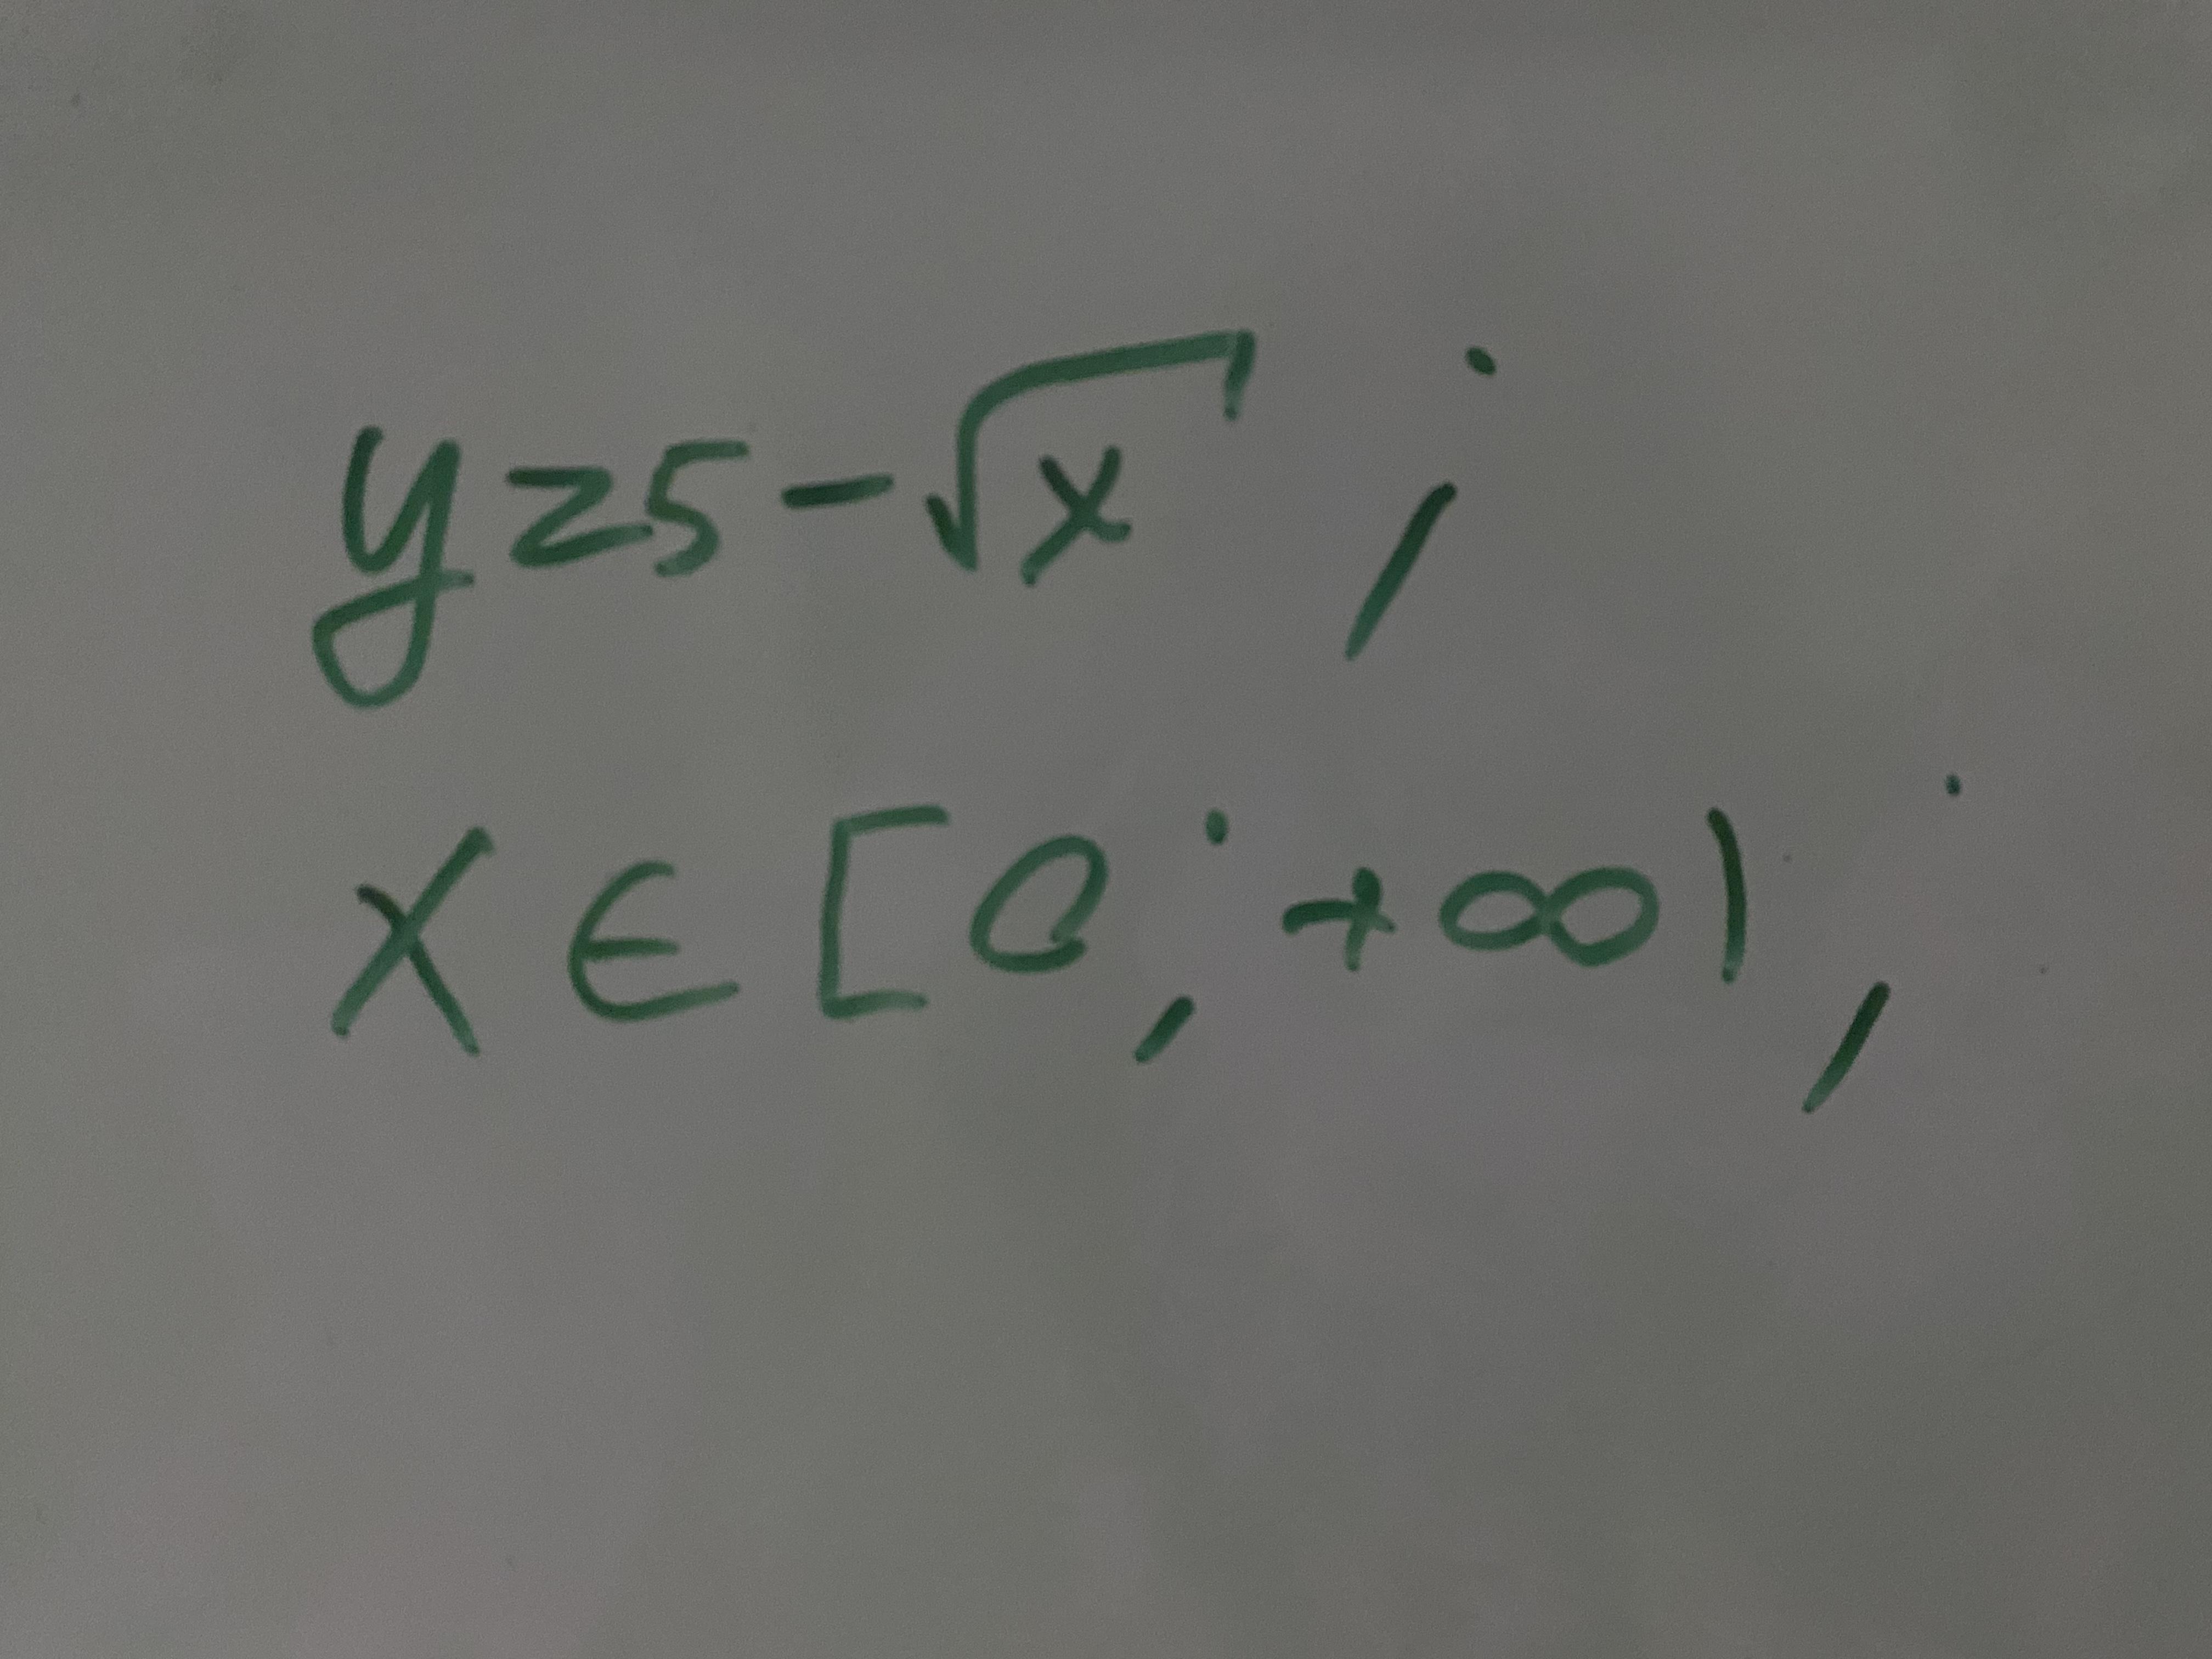 y=5-√x ;
x ∈ [0; +∞) ;